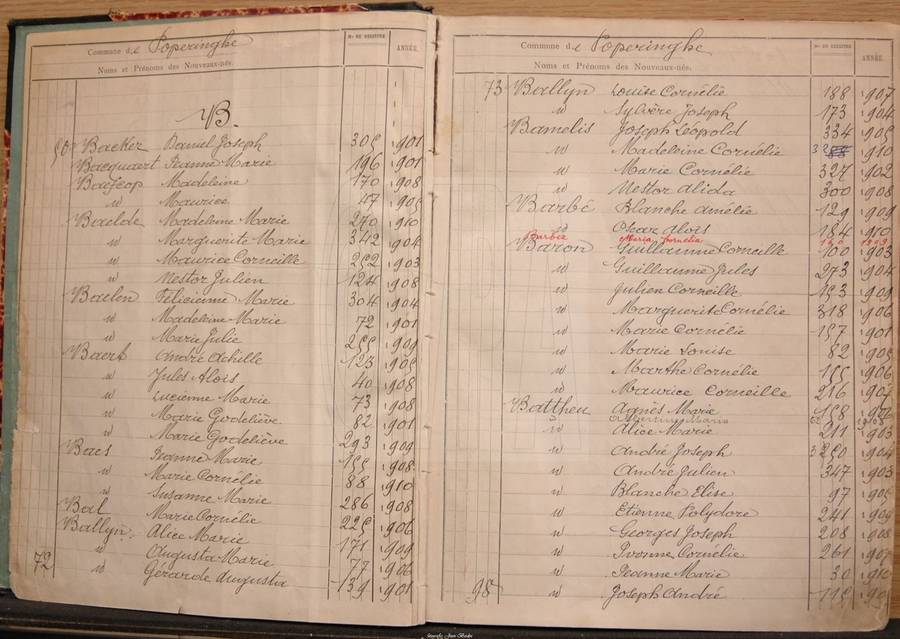 Commune de Poperinghe
Noms et Prénoms des Nouveaux-nés.
Nos DE REGISTRE
ANNÉE
B.
50 Backer Daniel Joseph 305 1901
Bacquaert Jeanne Marie 196 1901
Madeleine 170 1908
" Maurice 47 190
Baelde Madeleine Marie 240 1910
" Marguerite Marie 342 1904
" Maurice Corneille 252 1903
" Nestor Julien 124 1908
Baelen Félicienne Marie 304 1904
" Madeleine Marie 72 1901
" Marie Julie 255 1909
Baert André Achille 123 1905
" Jules Aloïs 40 1908
" Lucienne Marie 73 1908
" Marie Godeliève 82 1901
" Marie Godeliève 293 1909
Baes Jeanne Marie 155 1908
" Marie Cornélie 88 1910
" Susanne Marie 286 1908
Bal Marie Cornélie 225 1906
Ballyn Alice Marie 171 1909
" Augusta Marie 77 1906
72 " Gérarde Augusta 139 1901
Commune de Poperinghe
Noms et Prénoms des Nouveaux-nés.
Nos DE REGISTRE
ANNÉE
73 Ballyn Louise Cornélie 188 1907
" Sylvère Joseph 173 1904
Bamelis Joseph Léopold 334 1905
" Madeleine Cornélie 1910
" Marie Cornélie 327 1902
" Nestor Alida 300 1908
Barbé Blanche Amélie 129 1909
" Oscar Aloïs 184 1910
Barbez Maria Cornelia
Baron Guillaume Corneille 100 1903
" Guillaume Jules 273 1904
" Julien Corneille 153 1909
" Marguerite Cornélie 318 1906
" Marie Cornélie 157 1901
" Marie Louise 82 1905
" Marthe Cornélie 155 1906
" Maurice Corneille 216 1907
Battheu Agnès Marie 158
" Alice Marie 211 1903
" André Joseph 1904
" André Julien 347 1903
" Blanche Elise 97 1905
" Etienne Polydore 241 1909
" Georges Joseph 208 1908
" Yvonne Cornélie 261 1907
" Jeanne Marie 30 1910
98 " Joseph André 115